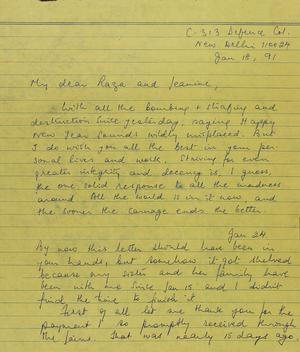 C-313 Defence Col.
New Delhi 110024
Jan 18, 91
My dear Raza and Jeanine,
With all the bombing & strafing and
destruction since yesterday, saying Happy
New Year sounds wildly misplaced. But
I do wish you all the best in your per-
sonal lives and work. Striving for even
greater integrity and decency is, I guess,
the one solid response to all the madness
around. All the world is in it now, and
the sooner the carnage ends the better.
Jan 24.
By now this letter should have been in
your hands, but somehow it got shelved
because my sister and her family have
been with me since Jan 18. and I didn't
find the time to finish it.
First of all let me thank you for the
payment I so promptly received through
the . That was nearly 15 days ago